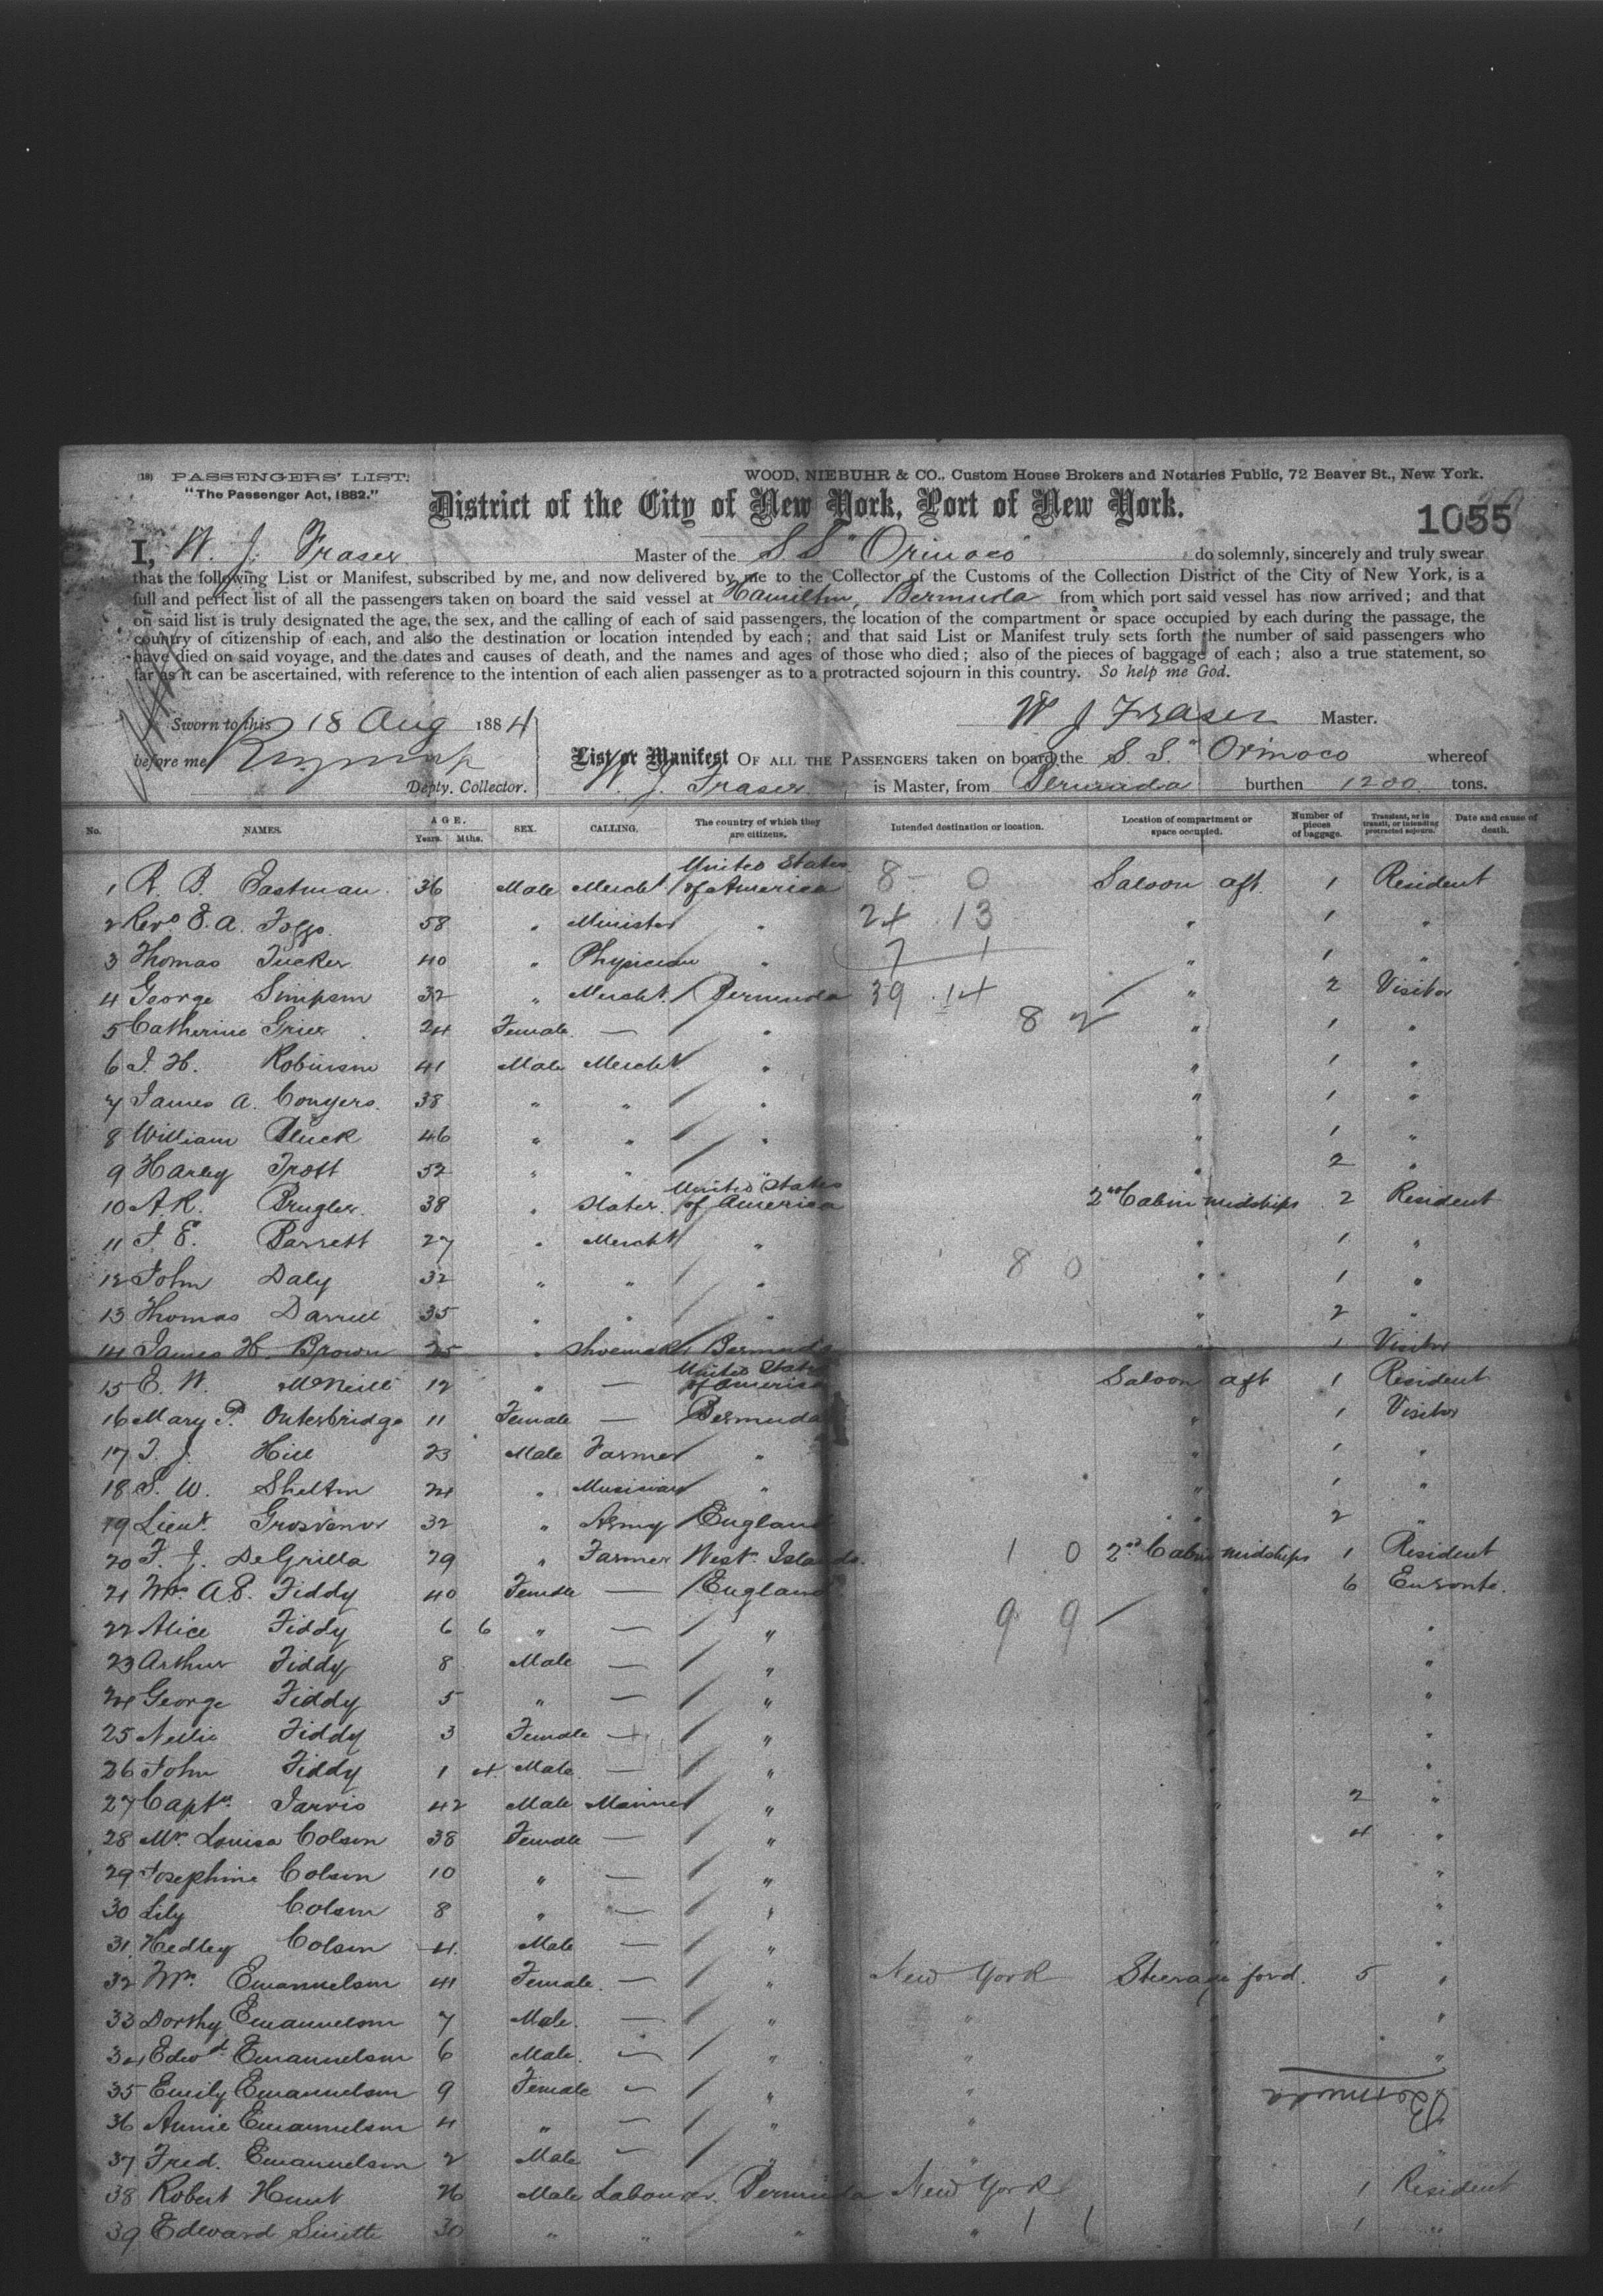 (18) PASSENGERS' LIST. WOOD, NIEBUHR & CO., Custom House Brokers and Notaries Public, 72 Beaver St., New York.
"The Passenger Act, 1882."
District of the City of New York, Port of New York.
1055
I, W. J. Fraser Master of the S.S "Orinoco" do solemnly, sincerely and truly swear
that the following List or Manifest, subscribed by me, and now delivered by me to the Collector of the Customs of the Collection District of the City of New York, is a
full and perfect list of all the passengers taken on board the said vessel at Hamilton, Bermuda from which port said vessel has now arrived; and that
on said list is truly designated the age, the sex, and the calling of each of said passengers, the location of the compartment or space occupied by each during the passage, the
country of citizenship of each, and also the destination or location intended by each; and that said List or Manifest truly sets forth the number of said passengers who
have died on said voyage, and the dates and causes of death, and the names and ages of those who died; also of the pieces of baggage of each; also a true statement, so
far as it can be ascertained, with reference to the intention of each alien passenger as to a protracted sojourn in this country. So help me God.
Sworn to this 18 Aug 1884 W J Fraser Master.
before me
List or Manifest OF ALL THE PASSENGERS taken on board the S. S. "Orinoco whereof
Depty. Collector. W. J. Fraser is Master, from Bermuda burthen 1200 tons.
No. NAMES. AGE. Years. Mths. SEX. CALLING. The country of which they are citizens. Intended destination or location. Location of compartment or space occupied. Number of pieces of baggage. Transient, or in transit, or intending protracted sojourn. Date and cause of death.
1 R. B. Eastman 36 Male Mercht United States of America 8 - 0 Saloon aft. 1 Resident
2 Revd E. A. Foggo 58 " Minister " 24 13 " 1 "
3 Thomas Tucker 40 " Physician " 7 1 " 1 "
4 George Simpson 32 " Mercht. Bermuda 39 14 " 2 Visitor
5 Catherine Grier 24 Female — " 8 2 " 1 "
6 J. H. Robinson 41 Male Mercht " " 1 "
7 James A. Conyers 38 " " " " 1 "
8 William Bluck 46 " " " " 1 "
9 Harley Trott 52 " " " " 2 "
10 A. R. Brugler 38 " Slater. United States of America 2nd Cabin midships 2 Resident
11 J. E. Barrett 27 " Mercht " " 1 "
12 John Daly 32 " " " 8 0 " 1 "
13 Thomas Darrell 35 " " " " 2 "
14 James H. Brown 25 " Shoemaker Bermuda " 1 Visitor
15 E. W. McNeill 12 " — United States of America Saloon aft 1 Resident
16 Mary P. Outerbridge 11 Female — Bermuda " 1 Visitor
17 T. J. Hill 23 Male Farmer " " 1 "
18 S. W. Shelton 24 " Musician " " 1 "
19 Lieut. Grosvenor 32 " Army England " 2 "
20 F. J. DeGrilla 29 " Farmer West. Islands. 1 0 2nd Cabin midships 1 Resident
21 Mrs A. E. Fiddy 40 Female — England " 6 Enroute.
22 Alice Fiddy 6 6 " — " 9 9 " "
23 Arthur Fiddy 8 Male — " "
24 George Fiddy 5 " — " "
25 Nellie Fiddy 3 Female — " " "
26 John Fiddy 1 4 Male — " "
27 Captn. Jarvis 42 Male Mariner " " 2 "
28 Mrs. Louisa Colson 38 Female — " 4 "
29 Josephine Colson 10 " — " "
30 Lily Colson 8 " — " "
31 Hedley Colson 4 Male — " "
32 Mrs. Emanuelson 41 Female — " New York Steerage ford. 5 "
33 Dorthy Emanuelson 7 Male. — " " "
34 Edwd Emanuelson 6 Male. — " " "
35 Emily Emanuelson 9 Female — " "
Bermuda
36 Annie Emanuelson 4 " — " "
37 Fred. Emanuelson 2 Male — " " "
38 Robert Hunt 26 Male Labourer. Bermuda New York 1 Resident
39 Edward Smith 30 " " " " 1 1 1 "